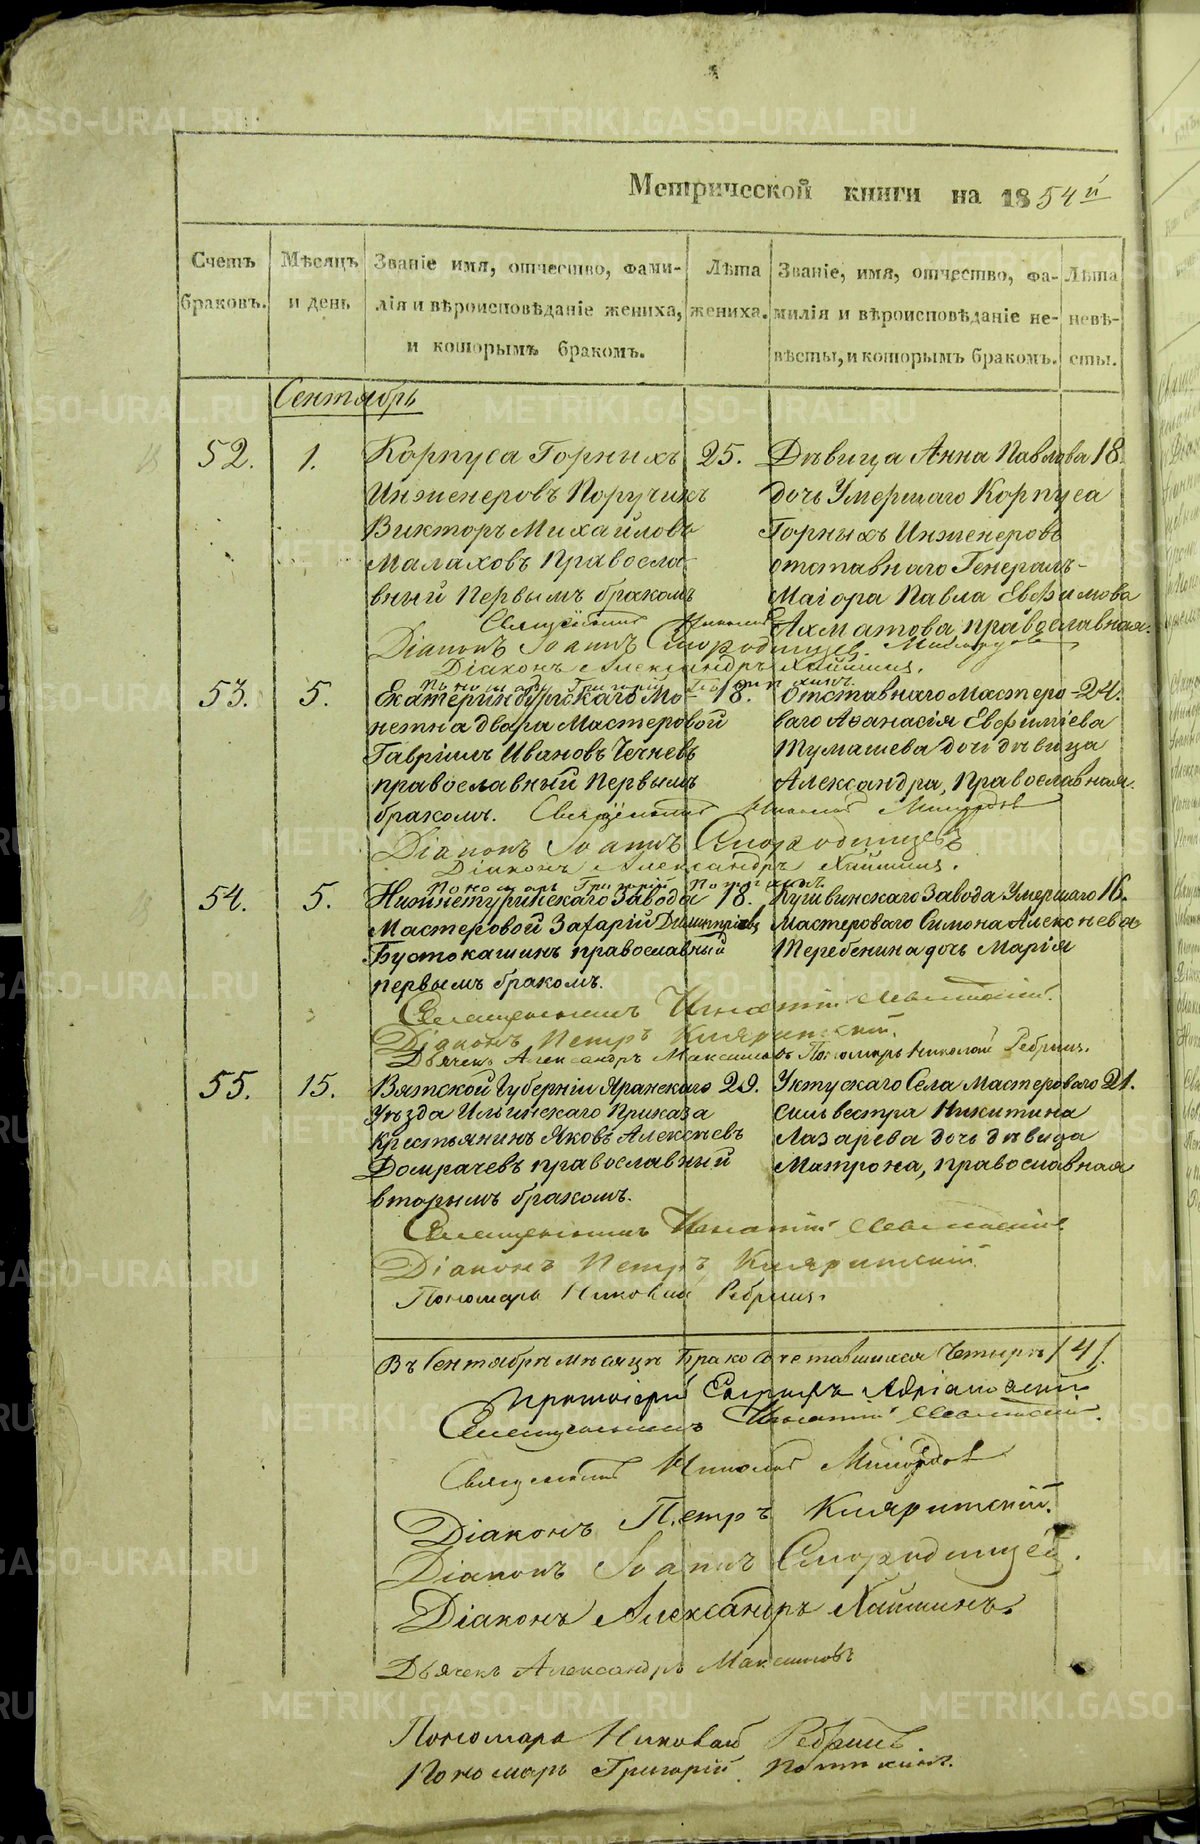 Метрической книги на 1854й
Счетъ браковъ.
Мѣсяцъ и день
Званіе имя, отчество, фами-
лія и вѣроисповѣданіе жениха,
и которымъ бракомъ.
Лѣта
жениха.
Званіе, имя, отчество, фа-
милія и вѣроисповѣданіе не-
вѣсты, и которымъ бракомъ.
Лѣта
невѣ-
сты.
Сентябрь
52. 1.
Корпуса Горныхъ 25.
Инженеровъ Поручикъ
Викторъ Михайловъ
Малаховъ Правосла-
вный Первымъ бракомъ
Дѣвица Анна Павлова 18.
дочь Умершаго Корпуса
Горныхъ Инженеровъ
отставнаго Генералъ-
Маіора Павла Евфимова
Ахматова, православная.
Священникъ Николай
Діаконъ Іоаннъ Смородинцевъ
Діаконъ Александръ Хаймин
Пономарь Григорій
53. 5.
Екатеринбургскаго Мо- 18.
нетна двара Мастеровой
Гавріилъ Ивановъ
православный Первымъ
бракомъ.
Отставнаго Мастеро- 24.
ваго Аѳанасія Евфиміева
Тумашева дочь дѣвица
Александра, Православная.
Священникъ Николай
Діаконъ Іоаннъ Смородинцевъ
Діаконъ Александръ
Пономарь Григорій
54. 5.
Нижнетуринскаго Завода 18.
Мастеровой Захарій Димитріевъ
Бустокашинъ православный
первымъ бракомъ.
Кушвинскаго Завода Умершаго 16.
Мастероваго Симона Алексѣева
Теребенина дочь Марія
Священникъ Игнатій
Діаконъ Петръ
Дьячекъ Александръ Максимовъ Пономарь Николай
55. 15.
Вятской Губерніи Яранскаго 29.
Уѣзда Ильинскаго Приказа
Крестьянинъ Яковъ Алексѣевъ
Домрачевъ православный
вторымъ бракомъ.
Уктускаго Села Мастероваго 21.
Сильвестра Никитина
Лазарева дочь дѣвица
Матрона, православная
Священникъ Игнатій
Діаконъ Петръ
Пономарь Николай
Въ Сентябрѣ мѣсяцѣ Бракосочетавшихся Четыре /4/.
Протоіерей
Священникъ Игнатій
Священникъ Николай
Діаконъ Петръ
Діаконъ Іоаннъ Смородинцевъ.
Діаконъ Александръ
Дьячекъ Александръ Максимовъ
Пономарь Николай
Пономарь Григорій
METRIKI.GASO-URAL.RU